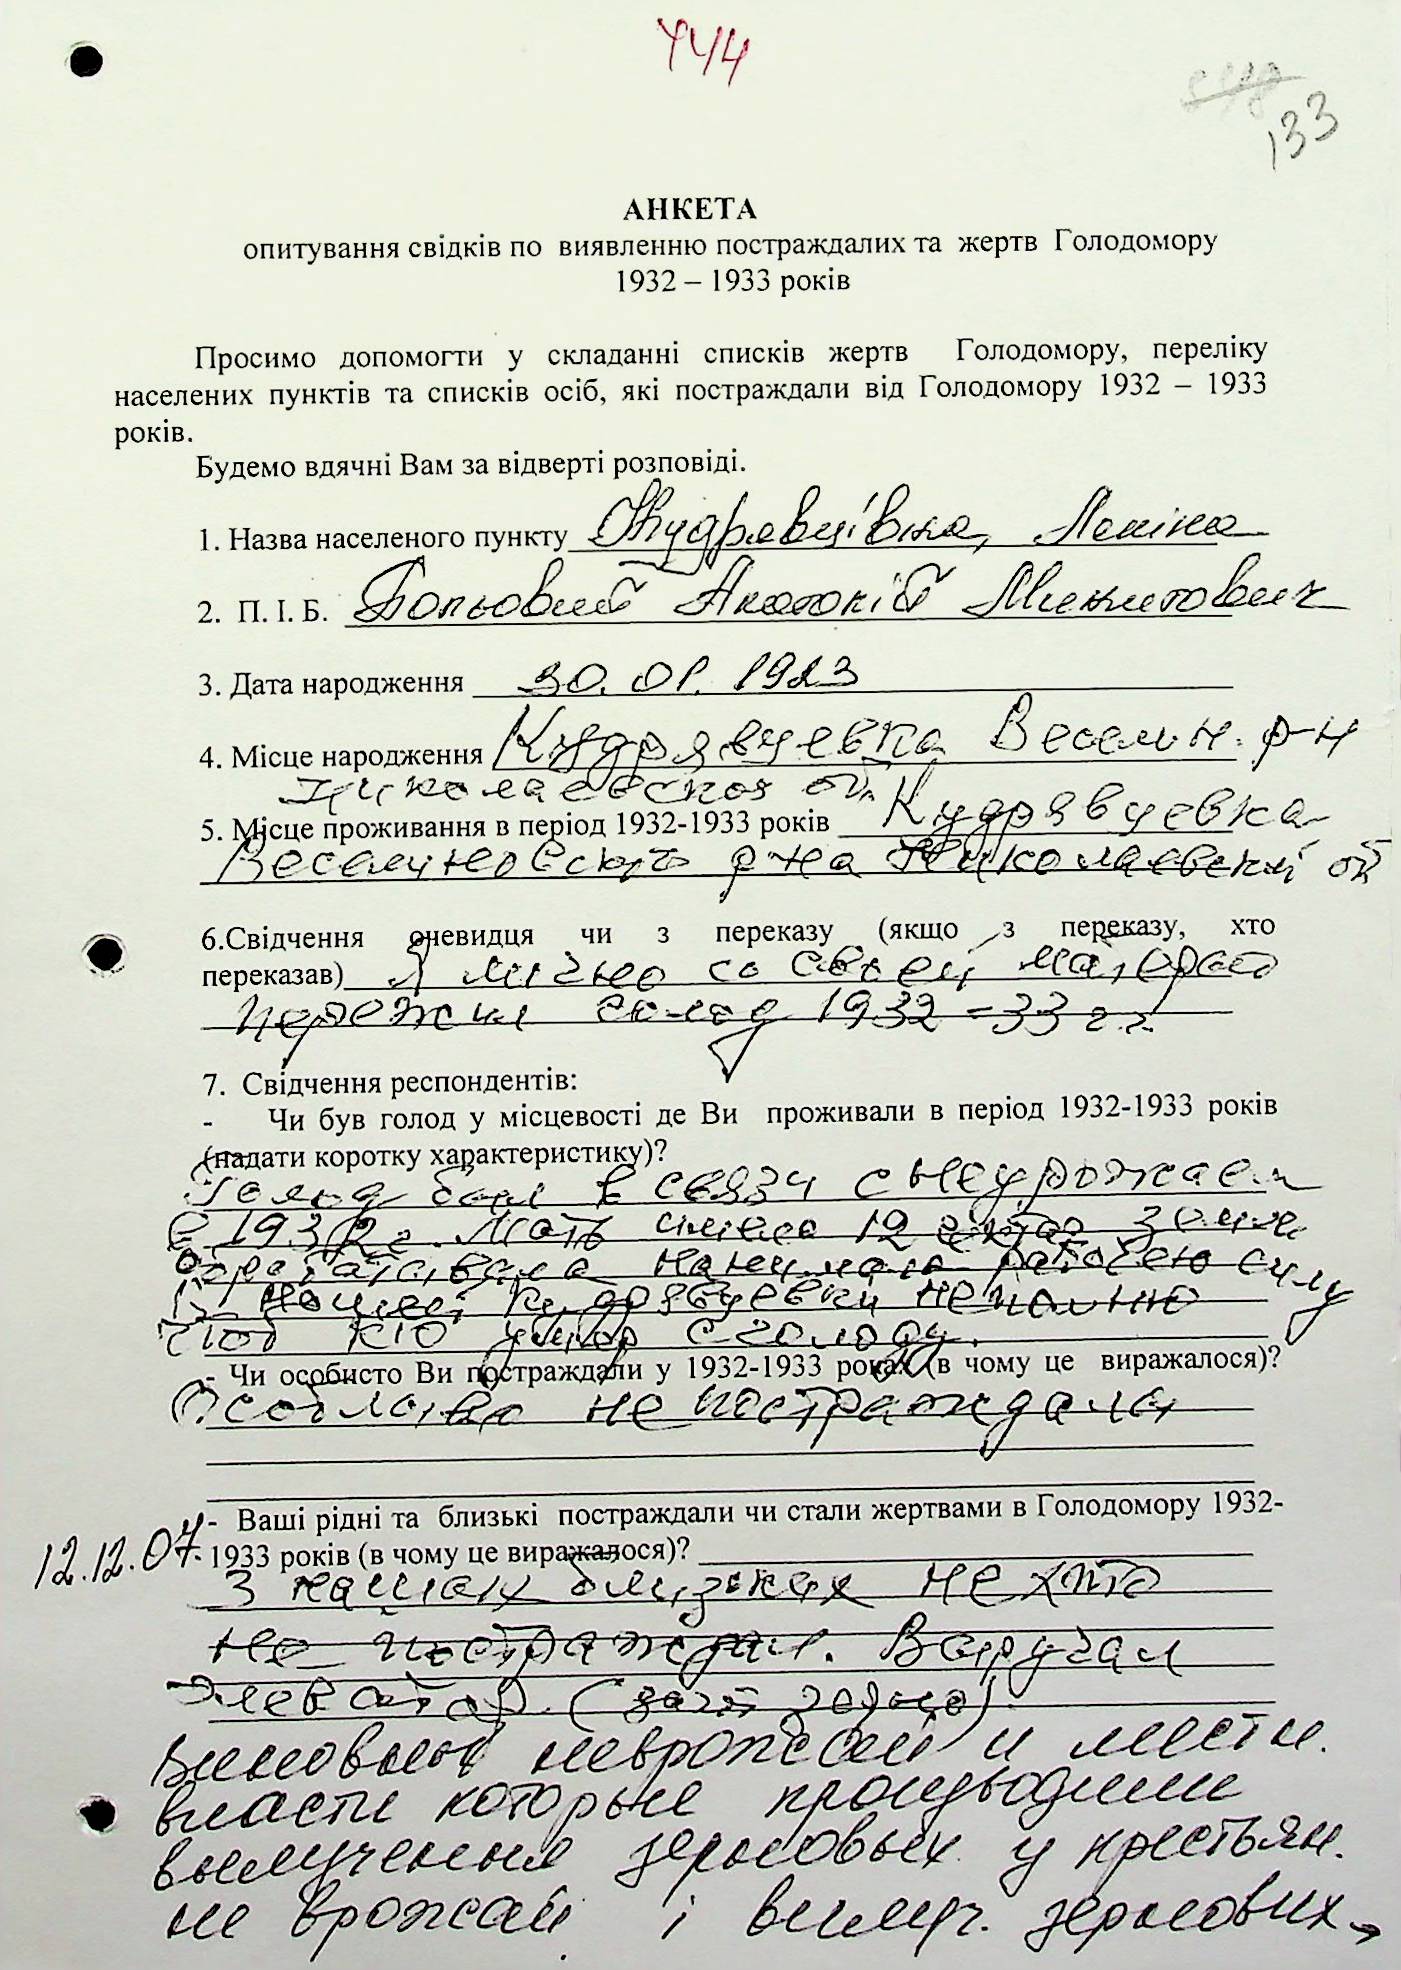 744
133
АНКЕТА
опитування свідків по виявленню постраждалих та жертв Голодомору
1932 – 1933 років
Просимо допомогти у складанні списків жертв Голодомору, переліку
населених пунктів та списків осіб, які постраждали від Голодомору 1932 – 1933
років.
Будемо вдячні Вам за відверті розповіді.
1. Назва населеного пункту Кудрявцівка, Леніна
2. П. І. Б. Анатолій Микитович
3. Дата народження 30.01.1923
4. Місце народження Кудрявцевка Веселин. р-н
Николаевской об.
5. Місце проживання в період 1932-1933 років Кудрявцевка
Веселиновского р-на Николаевской об
6.Свідчення очевидця чи з переказу (якщо з переказу, хто
переказав) Я лично со своей матерью
пережил голод 1932 – 33 г.г.
7. Свідчення респондентів:
- Чи був голод у місцевості де Ви проживали в період 1932-1933 років
(надати коротку характеристику)?
Голод был в связи с неурожаем
в 1932 г. Мать имела 12 земли
нанимала рабочею силу
В нашей Кудрявцевки не помню
кто умир с голоду.
- Чи особисто Ви постраждали у 1932-1933 роках (в чому це виражалося)?
Особливо не постраждали
- Ваші рідні та близькі постраждали чи стали жертвами в Голодомору 1932-
12.12.07. 1933 років (в чому це виражалося)?
З наших близких нехто
не постраждал. Выручал
элеватор (
неврожай и местн.
власти которые производили
вылучения зерновых у крестьян.
не врожай і вилуч. зернових →